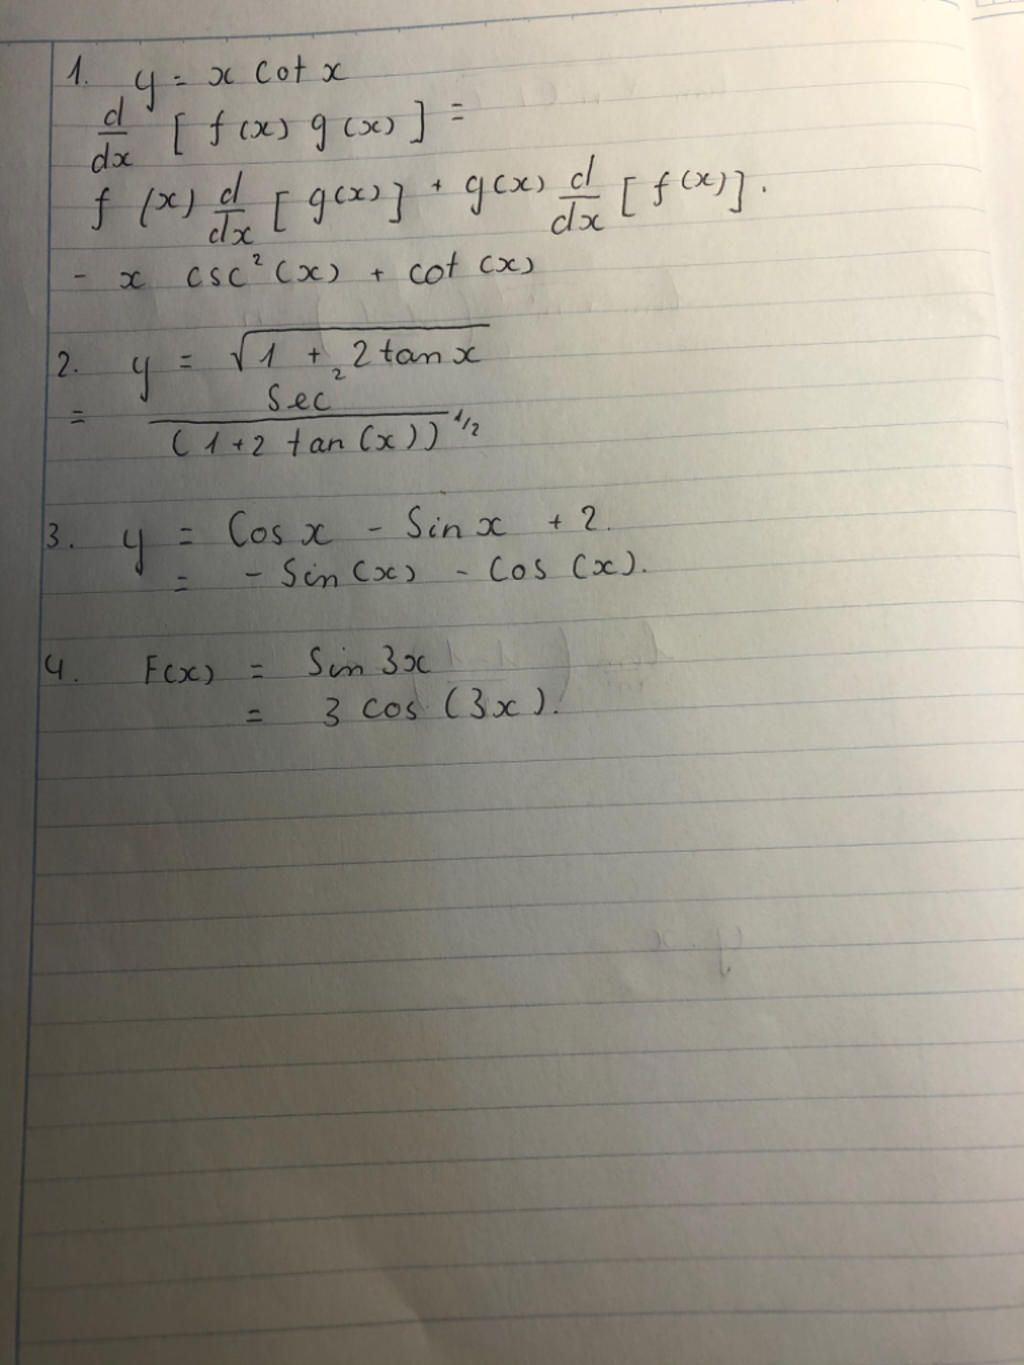 1. y = x cot x
d/dx [ f(x) g(x) ] =
f (x) d/dx [ g(x) ] + g(x) d/dx [ f(x) ].
- x csc²(x) + cot (x)
2. y = √1 + 2 tan x
= Sec² / (1+2 tan (x))^1/2
3. y = Cos x - Sin x + 2.
= - Sin (x) - Cos (x).
4. F(x) = Sin 3x
= 3 cos (3x).